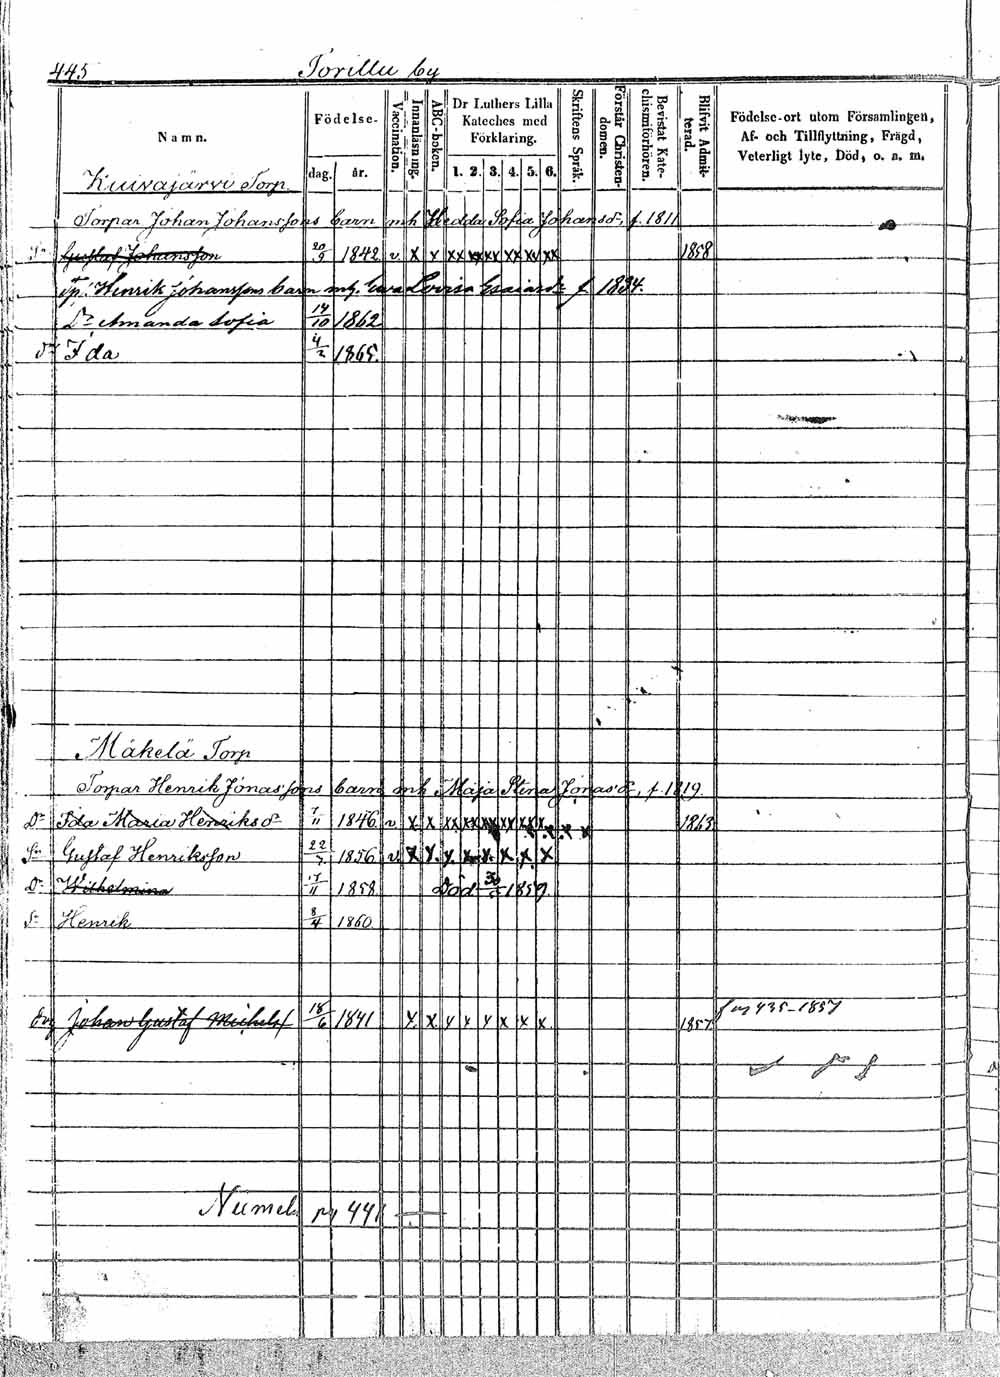 443 Torilla by
Namn. Födelse- dag. år. Vaccination. Innanläsning. ABC-boken. Dr Luthers Lilla Kateches med Förklaring. 1. 2. 3. 4. 5. 6. Skriftens Språk. Förstår Christendomen. Bevistat Katechismiförhören. Blifvit Admitterad. Födelse-ort utom Församlingen, Af- och Tillflyttning, Frägd, Veterligt lyte, Död, o. s. m.
Kuivajärvi Torp
Torpar Johan Johanssons barn mh Hedda Sofia Johansd:r, f. 1811
Sn Gustaf Johansson 20/9 1842 v x x xx xx xx xx xx xx 1858
Tp: Henrik Johanssons barn m/h Ewa Lovisa Esaiasdr f 1834.
Dr Amanda Sofia 14/10 1862
dr Ida 4/2 1865.
Mäkelä Torp
Torpar Henrik Jonassons barn mh Maja Stina Jonasdr, f. 1819.
Dr Ida Maria Henriksdr 7/11 1846 v x x xx xx xx xx xx x x x x 1863
Sn Gustaf Henriksson 22/7 1856 v x x x x x x x x
Dr Wilhelmina 17/11 1858 Död 30/5 1859.
Sn Henrik 8/4 1860
Johan Gustaf Michelsf 18/6 1841 x x x x x x x x 1857 f pag 435-1857
Numels pag 441